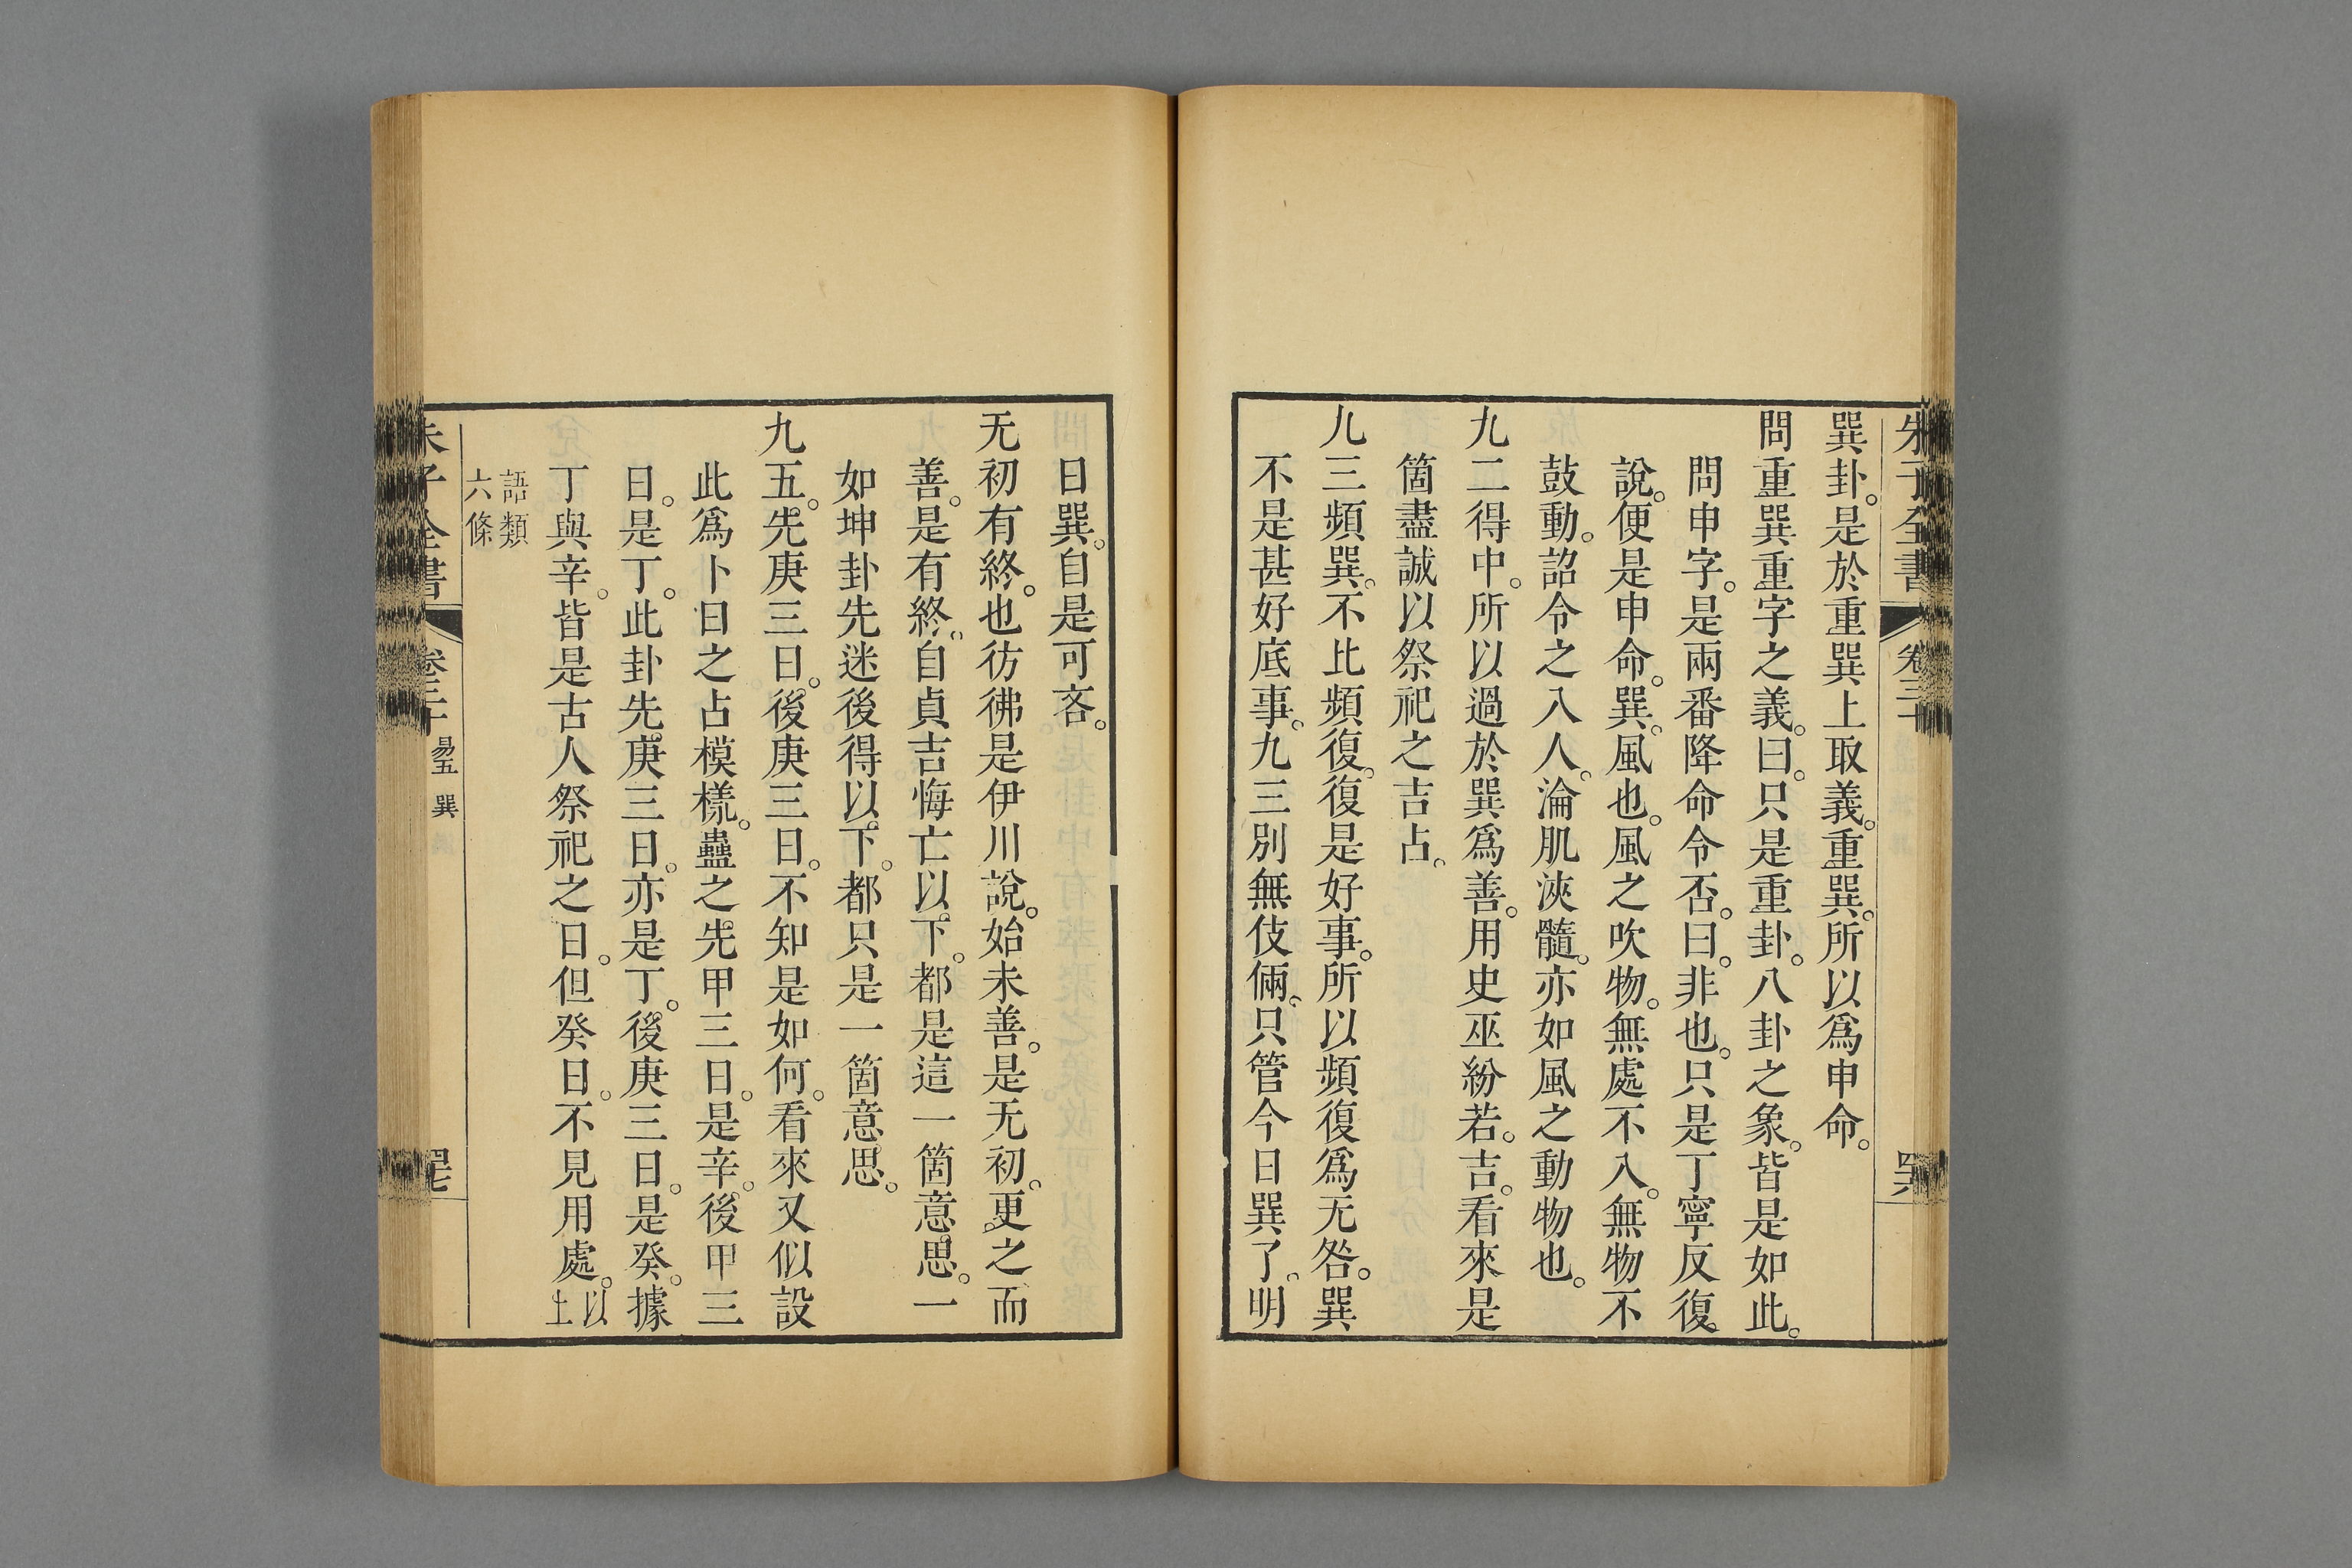 朱子全書 卷三十 哭
巽卦。是於重巽上取義。重巽。所以爲申命。
問重巽重字之義。曰。只是重卦。八卦之象。皆是如此。
問申字。是兩番降命令否。曰。非也。只是丁寧反復
說。便是申命。巽。風也。風之吹物。無處不入。無物不
鼓動。詔令之入人。淪肌浹髓。亦如風之動物也。
九二得中。所以過於巽爲善。用史巫紛若。吉。看來是
箇盡誠以祭祀之吉占。
九三頻巽。不比頻復。復是好事。所以頻復爲无咎。巽
不是甚好底事。九三別無伎倆。只管今日巽了。明
日巽。自是可吝。
无初有終。也彷彿是伊川說。始未善。是无初。更之而
善。是有終。自貞吉悔亡以下。都是這一箇意思。一
如坤卦先迷後得以下。都只是一箇意思。
九五。先庚三日。後庚三日。不知是如何。看來又似設
此爲卜日之占模樣。蠱之先甲三日。是辛。後甲三
日。是丁。此卦先庚三日。亦是丁。後庚三日。是癸。據
丁與辛。皆是古人祭祀之日。但癸日。不見用處。以上
語類
六條
朱子全書 卷三十 易五 巽